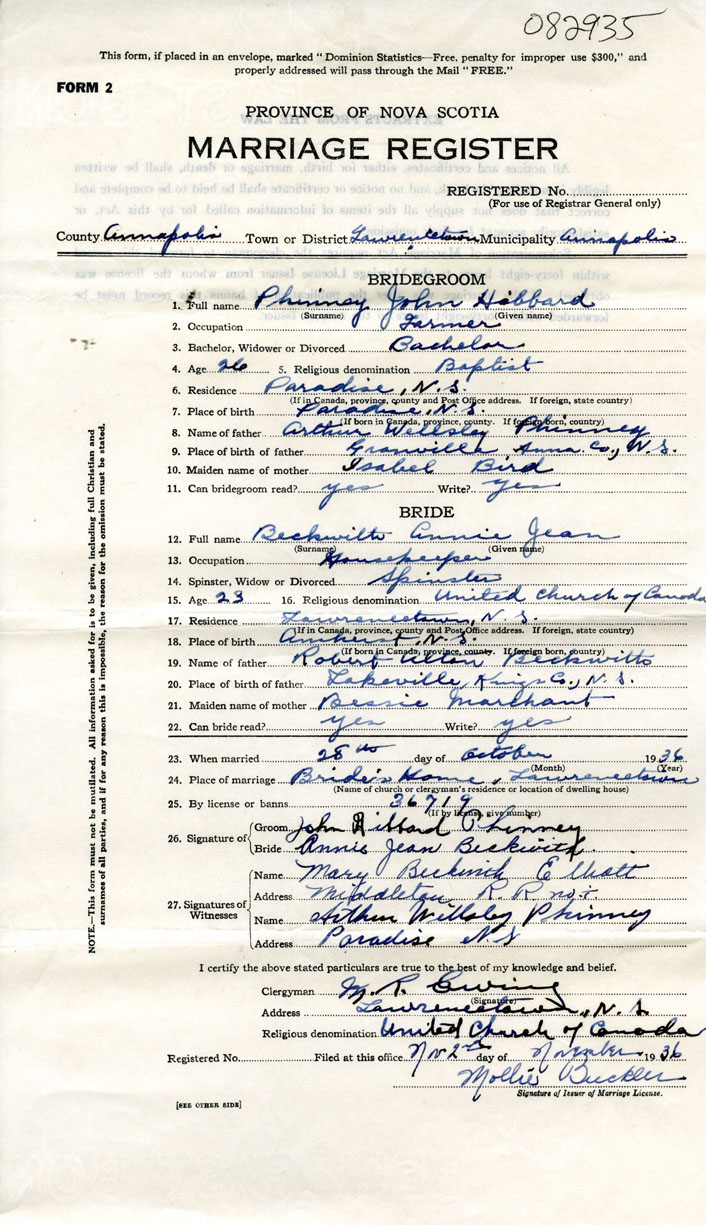 082935
This form, if placed in an envelope, marked "Dominion Statistics—Free, penalty for improper use $300," and
properly addressed will pass through the Mail "FREE."
FORM 2
PROVINCE OF NOVA SCOTIA
MARRIAGE REGISTER
REGISTERED No.
(For use of Registrar General only)
County Annapolis Town or District Lawrencetown Municipality Annapolis
BRIDEGROOM
1. Full name Phinney John Hibbard
(Surname) (Given name)
2. Occupation Farmer
3. Bachelor, Widower or Divorced Bachelor
4. Age 26 5. Religious denomination Baptist
6. Residence Paradise, N.S.
(If in Canada, province, county and Post Office address. If foreign, state country)
7. Place of birth Paradise, N.S.
(If born in Canada, province, county. If foreign born, country)
8. Name of father Arthur Wellsley Phinney
9. Place of birth of father Granville, Anna. Co., N.S.
10. Maiden name of mother Isabel Bird
11. Can bridegroom read? yes Write? yes
BRIDE
12. Full name Beckwith Annie Jean
(Surname) (Given name)
13. Occupation Housekeeper
14. Spinster, Widow or Divorced Spinster
15. Age 23 16. Religious denomination United Church of Canada
17. Residence Lawrencetown, N.S.
(If in Canada, province, county and Post Office address. If foreign, state country)
18. Place of birth Amherst, N.S.
(If born in Canada, province, county. If foreign born, country)
19. Name of father Robert Alton Beckwith
20. Place of birth of father Lakeville, Kings Co., N.S.
21. Maiden name of mother Bessie Marchant
22. Can bride read? yes Write? yes
23. When married 28th day of October 1936
(Month) (Year)
24. Place of marriage Bride's Home, Lawrencetown
(Name of church or clergyman's residence or location of dwelling house)
25. By license or banns 36719
(If by license, give number)
26. Signature of Groom John Hibbard Phinney
Bride Annie Jean Beckwith
27. Signatures of Witnesses
Name Mary Beckwith Elliott
Address Middleton R R no
Name Arthur Willsley Phinney
Address Paradise N.S
I certify the above stated particulars are true to the best of my knowledge and belief.
Clergyman M. R. Ewing
(Signature)
Address Lawrencetown, N.S.
Religious denomination United Church of Canada
Registered No. Filed at this office Nov 2nd day of November 1936
Mollie Buckler
Signature of Issuer of Marriage License.
[SEE OTHER SIDE]
NOTE.—This form must not be mutilated. All information asked for is to be given, including full Christian and
surnames of all parties, and if for any reason this is impossible, the reason for the omission must be stated.